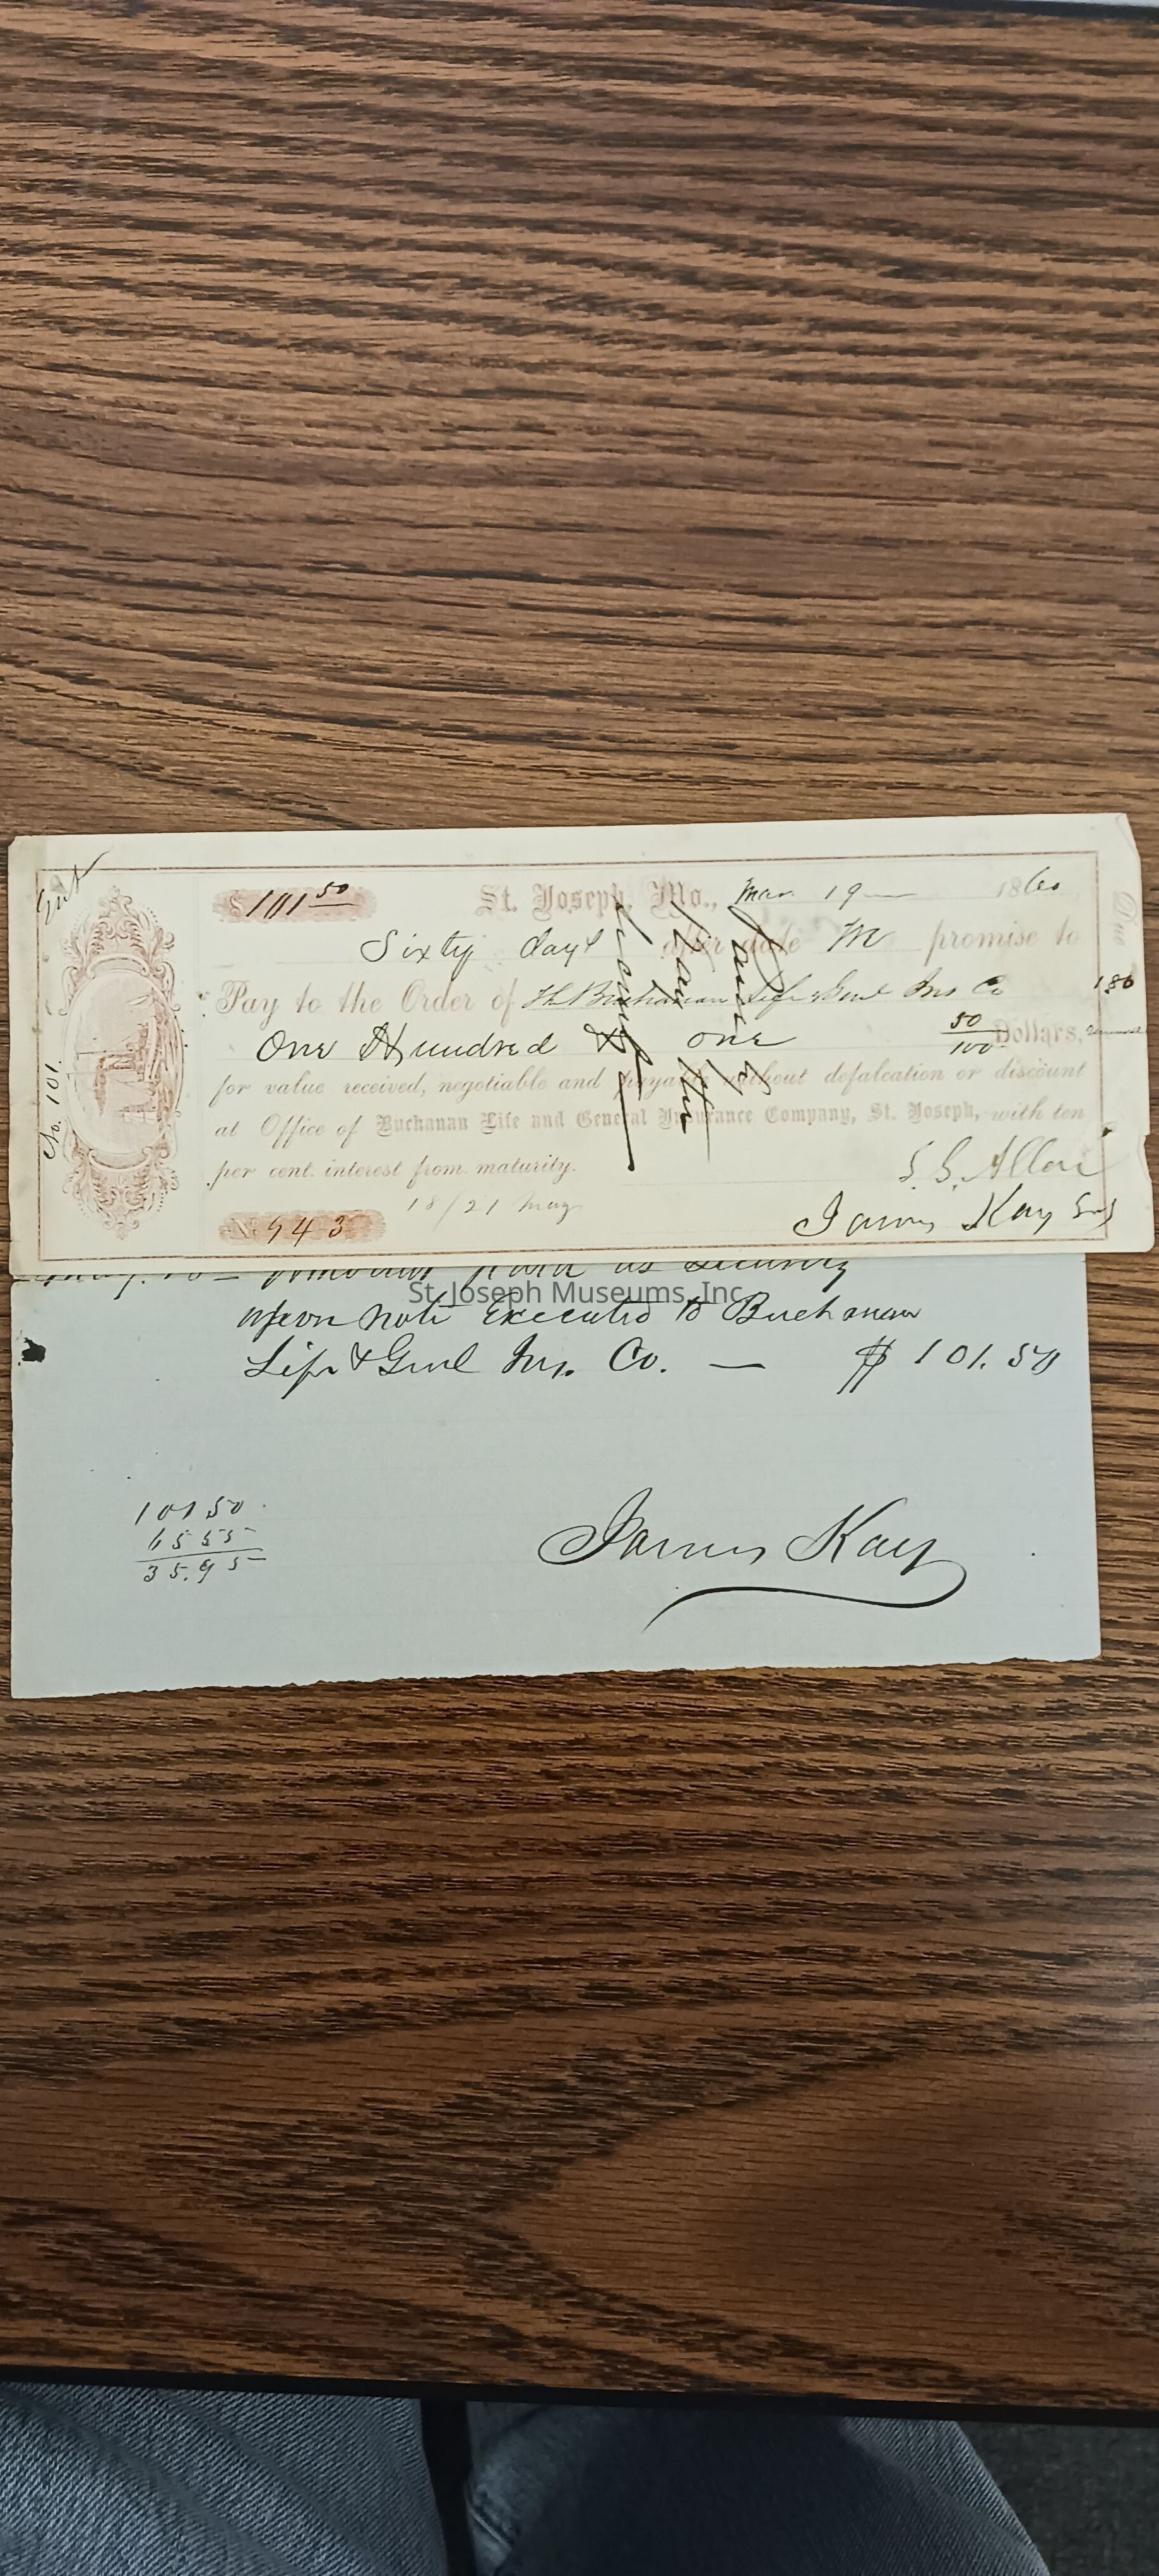 Ent
No. 101.
$ 101 50
St. Joseph, Mo., Mar. 19 1860
Sixty days after date We promise to
Pay to the Order of The Buchanan Life & Genl Ins Co
One Hundred & one 50/100 Dollars,
for value received, negotiable and payable without defalcation or discount
at Office of Buchanan Life and General Insurance Company, St. Joseph, with ten
per cent. interest from maturity.
18/21 May
No 943
Due
186
James Kay Sey
upon note Executed to Buchanan
Life & Genl Ins. Co. — $ 101.50
101 50
65 55
35.95
James Kay
St. Joseph Museums, Inc.